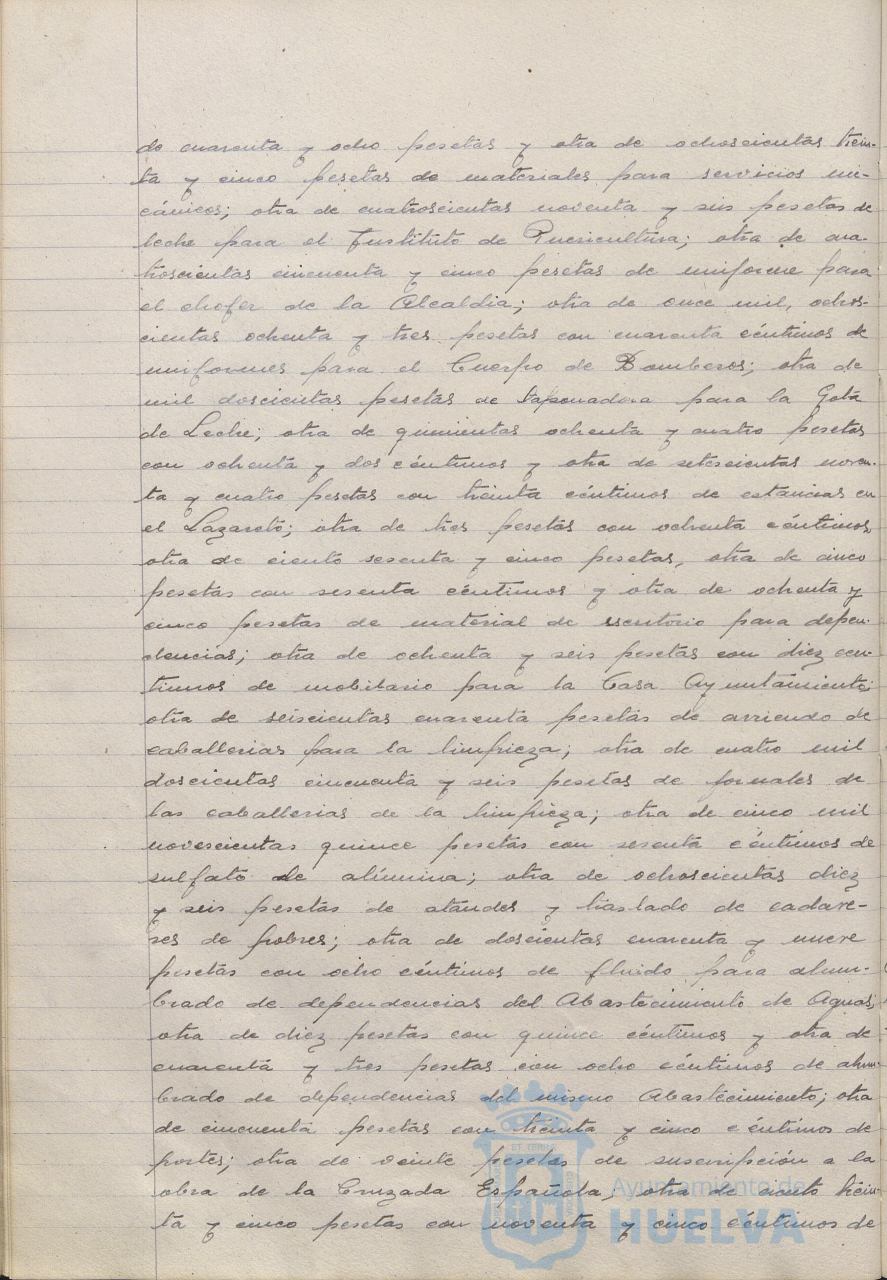 de cuarenta y ocho pesetas y otra de ochoscientas trein-
ta y cinco pesetas de materiales para servicios me-
cánicos; otra de cuatroscientas noventa y seis pesetas de
leche para el Instituto de Puericultura; otra de cua-
troscientas cincuenta y cinco pesetas de uniforme para
el chofer de la Alcaldia; otra de once mil, ochos-
cientas ochenta y tres pesetas con cuarenta céntimos de
uniformes para el Cuerpo de Bomberos; otra de
mil doscientas pesetas de taponadora para la Gota
de Leche; otra de quinientas ochenta y cuatro pesetas
con ochenta y dos céntimos y otra de setescientas noven-
ta y cuatro pesetas con treinta céntimos de estancias en
el Lazareto; otra de tres pesetas con ochenta céntimos,
otra de ciento sesenta y cinco pesetas, otra de cinco
pesetas con sesenta céntimos y otra de ochenta y
cinco pesetas de material de escritorio para depen-
dencias; otra de ochenta y seis pesetas con diez cen-
timos de mobilario para la Casa Ayuntamiento;
otra de seiscientas cuarenta pesetas de arriendo de
caballerias para la limpieza; otra de cuatro mil
doscientas cincuenta y seis pesetas de jornales de
las caballerias de la limpieza; otra de cinco mil
novescientas quince pesetas con sesenta céntimos de
sulfato de alúmina; otra de ochoscientas diez
y seis pesetas de ataudes y traslado de cadave-
res de pobres; otra de doscientas cuarenta y nueve
pesetas con ocho céntimos de fluido para alum-
brado de dependencias del Abastecimiento de Aguas;
otra de diez pesetas con quince céntimos y otra de
cuarenta y tres pesetas con ocho céntimos de alum-
brado de dependencias del mismo Abastecimiento; otra
de cincuenta pesetas con treinta y cinco céntimos de
portes; otra de veinte pesetas de suscripción a la
obra de la Cruzada Española; otra de ciento trein-
ta y cinco pesetas con noventa y cinco céntimos de
Ayuntamiento de
HUELVA